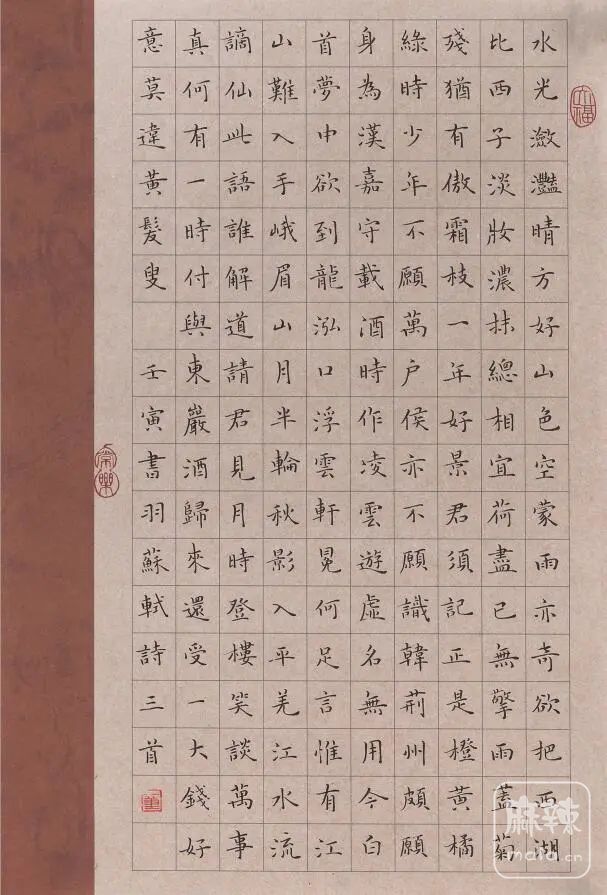 水光瀲灩晴方好山色空蒙雨亦奇欲把西湖
比西子淡妝濃抹總相宜荷盡已無擎雨蓋菊
殘猶有傲霜枝一年好景君須記正是橙黃橘
綠時少年不願萬戶侯亦不願識韓荊州頗願
身為漢嘉守載酒時作凌雲遊虛名無用今白
首夢中欲到龍泓口浮雲軒冕何足言惟有江
山難入手峨眉山月半輪秋影入平羌江水流
謫仙此語誰解道請君見月時登樓笑談萬事
真何有一時付與東巖酒歸來還受一大錢好
意莫違黃髮叟 壬寅書羽蘇軾詩三首
常樂
麻辣
mala.cn